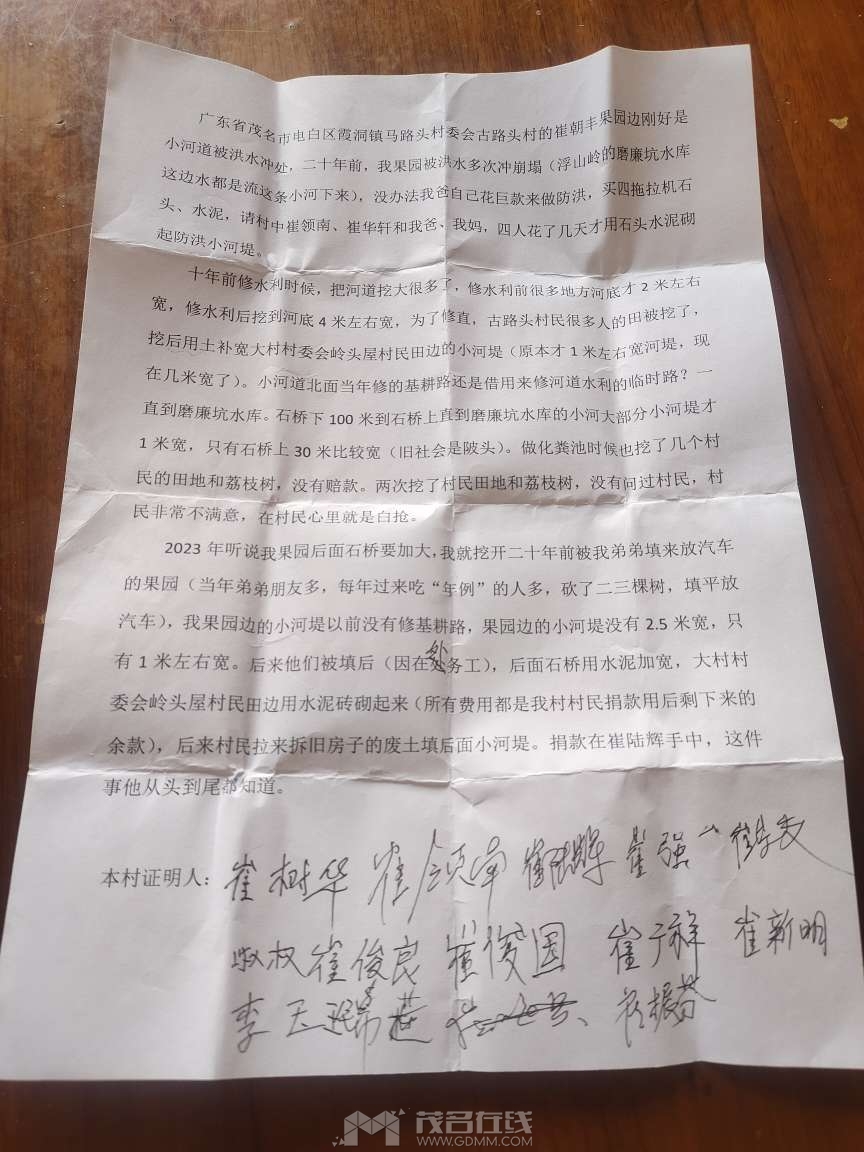 广东省茂名市电白区霞洞镇马路头村委会古路头村的崔朝丰果园边刚好是
小河道被洪水冲处，二十年前，我果园被洪水多次冲崩塌（浮山岭的磨廉坑水库
这边水都是流这条小河下来），没办法我爸自己花巨款来做防洪，买四拖拉机石
头、水泥，请村中崔领南、崔华轩和我爸、我妈，四人花了几天才用石头水泥砌
起防洪小河堤。
十年前修水利时候，把河道挖大很多了，修水利前很多地方河底才 2 米左右
宽，修水利后挖到河底 4 米左右宽，为了修直，古路头村民很多人的田被挖了，
挖后用土补宽大村村委会岭头屋村民田边的小河堤（原本才 1 米左右宽河堤，现
在几米宽了）。小河道北面当年修的基耕路还是借用来修河道水利的临时路？一
直到磨廉坑水库。石桥下 100 米到石桥上直到磨廉坑水库的小河大部分小河堤才
1 米宽，只有石桥上 30 米比较宽（旧社会是陂头）。做化粪池时候也挖了几个村
民的田地和荔枝树，没有赔款。两次挖了村民田地和荔枝树，没有问过村民，村
民非常不满意，在村民心里就是白抢。
2023 年听说我果园后面石桥要加大，我就挖开二十年前被我弟弟填来放汽车
的果园（当年弟弟朋友多，每年过来吃“年例”的人多，砍了二三棵树，填平放
汽车），我果园边的小河堤以前没有修基耕路，果园边的小河堤没有 2.5 米宽，只
有 1 米左右宽。后来他们被填后（因在外务工），后面石桥用水泥加宽，大村村
委会岭头屋村民田边用水泥砖砌起来（所有费用都是我村村民捐款用后剩下来的
余款），后来村民拉来拆旧房子的废土填后面小河堤。捐款在崔陆辉手中，这件
事他从头到尾都知道。
本村证明人：崔树华 崔领南 崔强
崔俊良 崔俊国 崔广祥 崔新明
李玉
茂名在线
WWW.GDMM.COM